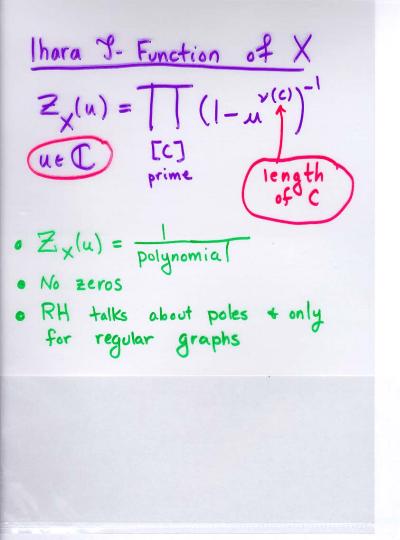 Ihara ζ-Function of X
Z_X(u) = ∏ (1-u^ν(C))^-1
u∈ℂ
[C]
prime
length
of C
• Z_X(u) = 1/polynomial
• No zeros
• RH talks about poles & only
for regular graphs